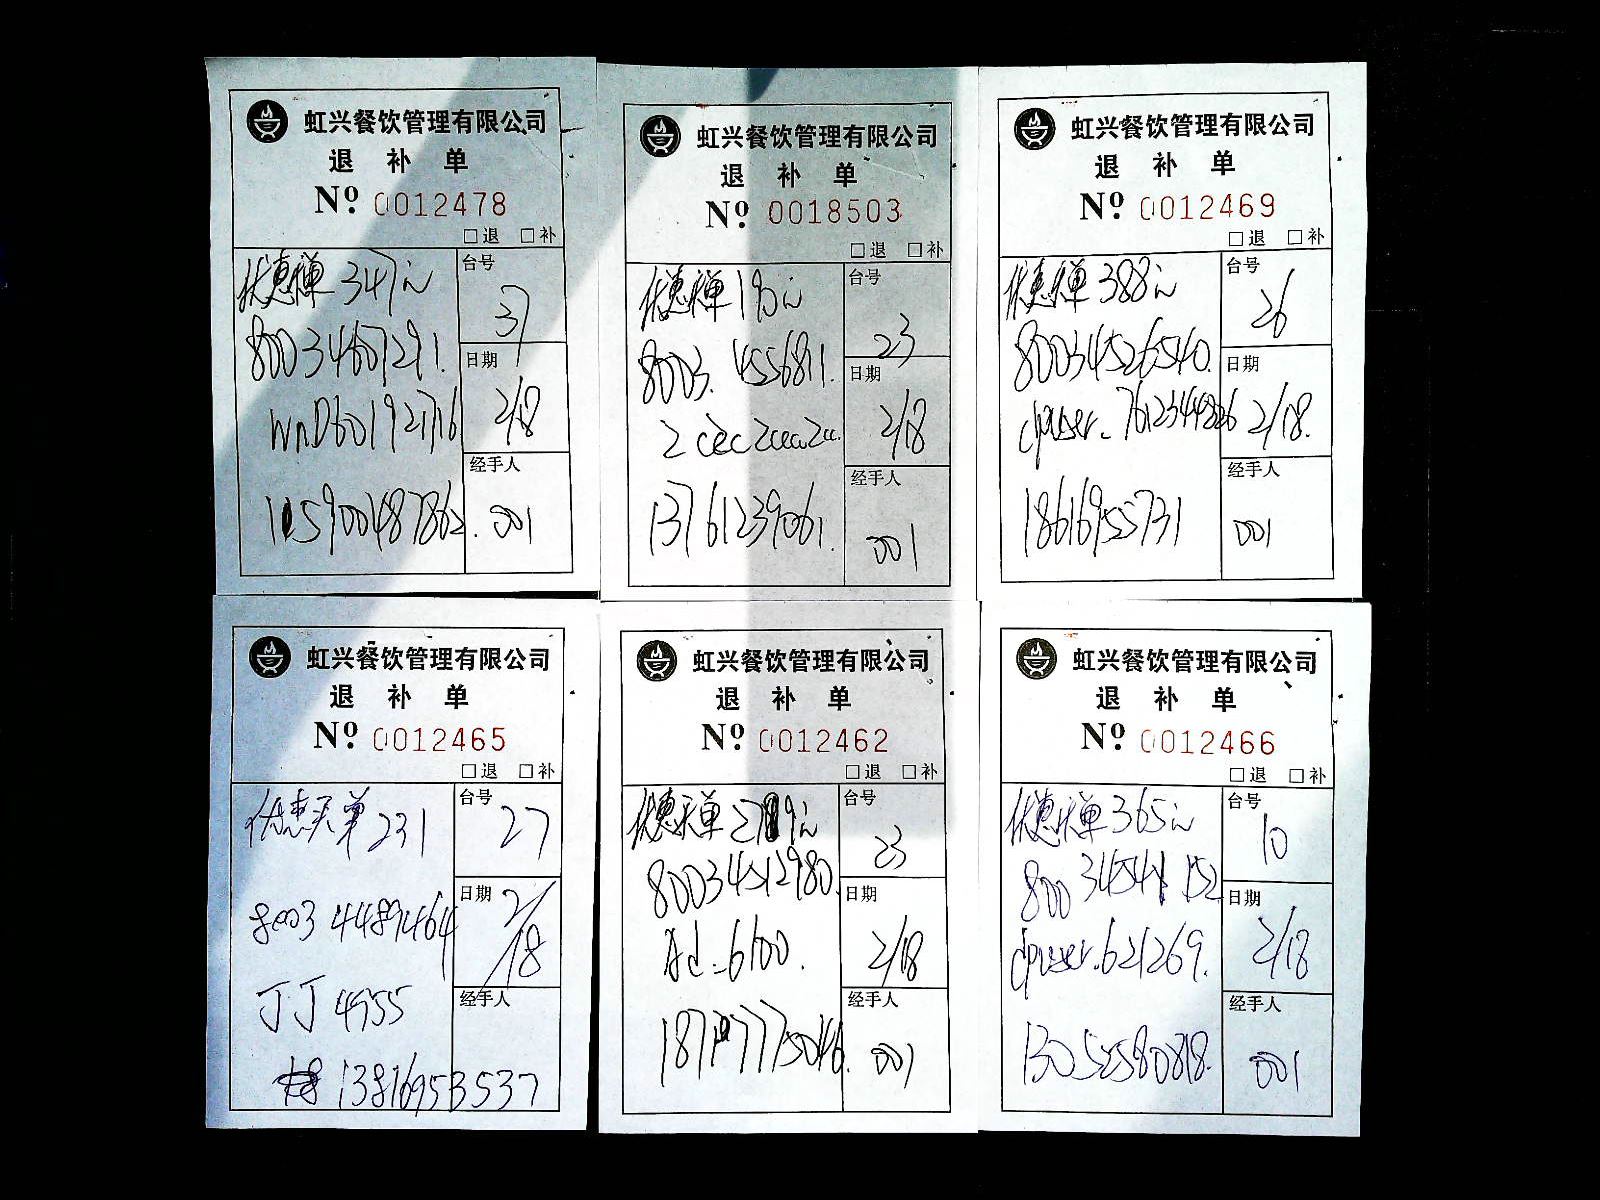 虹兴餐饮管理有限公司
退 补 单
Nº 0012478
□退 □补
优惠买单 347元
台号
37
80034607291.
日期
2/18
WnD601921716
经手人
15900487862.
001
虹兴餐饮管理有限公司
退 补 单
Nº 0018503
□退 □补
优惠买单 190元
台号
23
8003. 4556811.
日期
2/18
经手人
13761239061.
001
虹兴餐饮管理有限公司
退 补 单
Nº 0012469
□退 □补
优惠买单 388元
台号
26
80034526540.
日期
2/18.
dpuser-
经手人
18616955731
001
虹兴餐饮管理有限公司
退 补 单
Nº 0012465
□退 □补
优惠买单 231
台号
27
8003 4489464
日期
2/18
丁丁 4955
经手人
13816953537
虹兴餐饮管理有限公司
退 补 单
Nº 0012462
□退 □补
优惠买单
台号
23
80034512980.
日期
2/18
Ad-6100.
经手人
001
虹兴餐饮管理有限公司
退 补 单
Nº 0012466
□退 □补
优惠买单 365元
台号
10
日期
2/18
dpuser.621269.
经手人
13052580818.
001